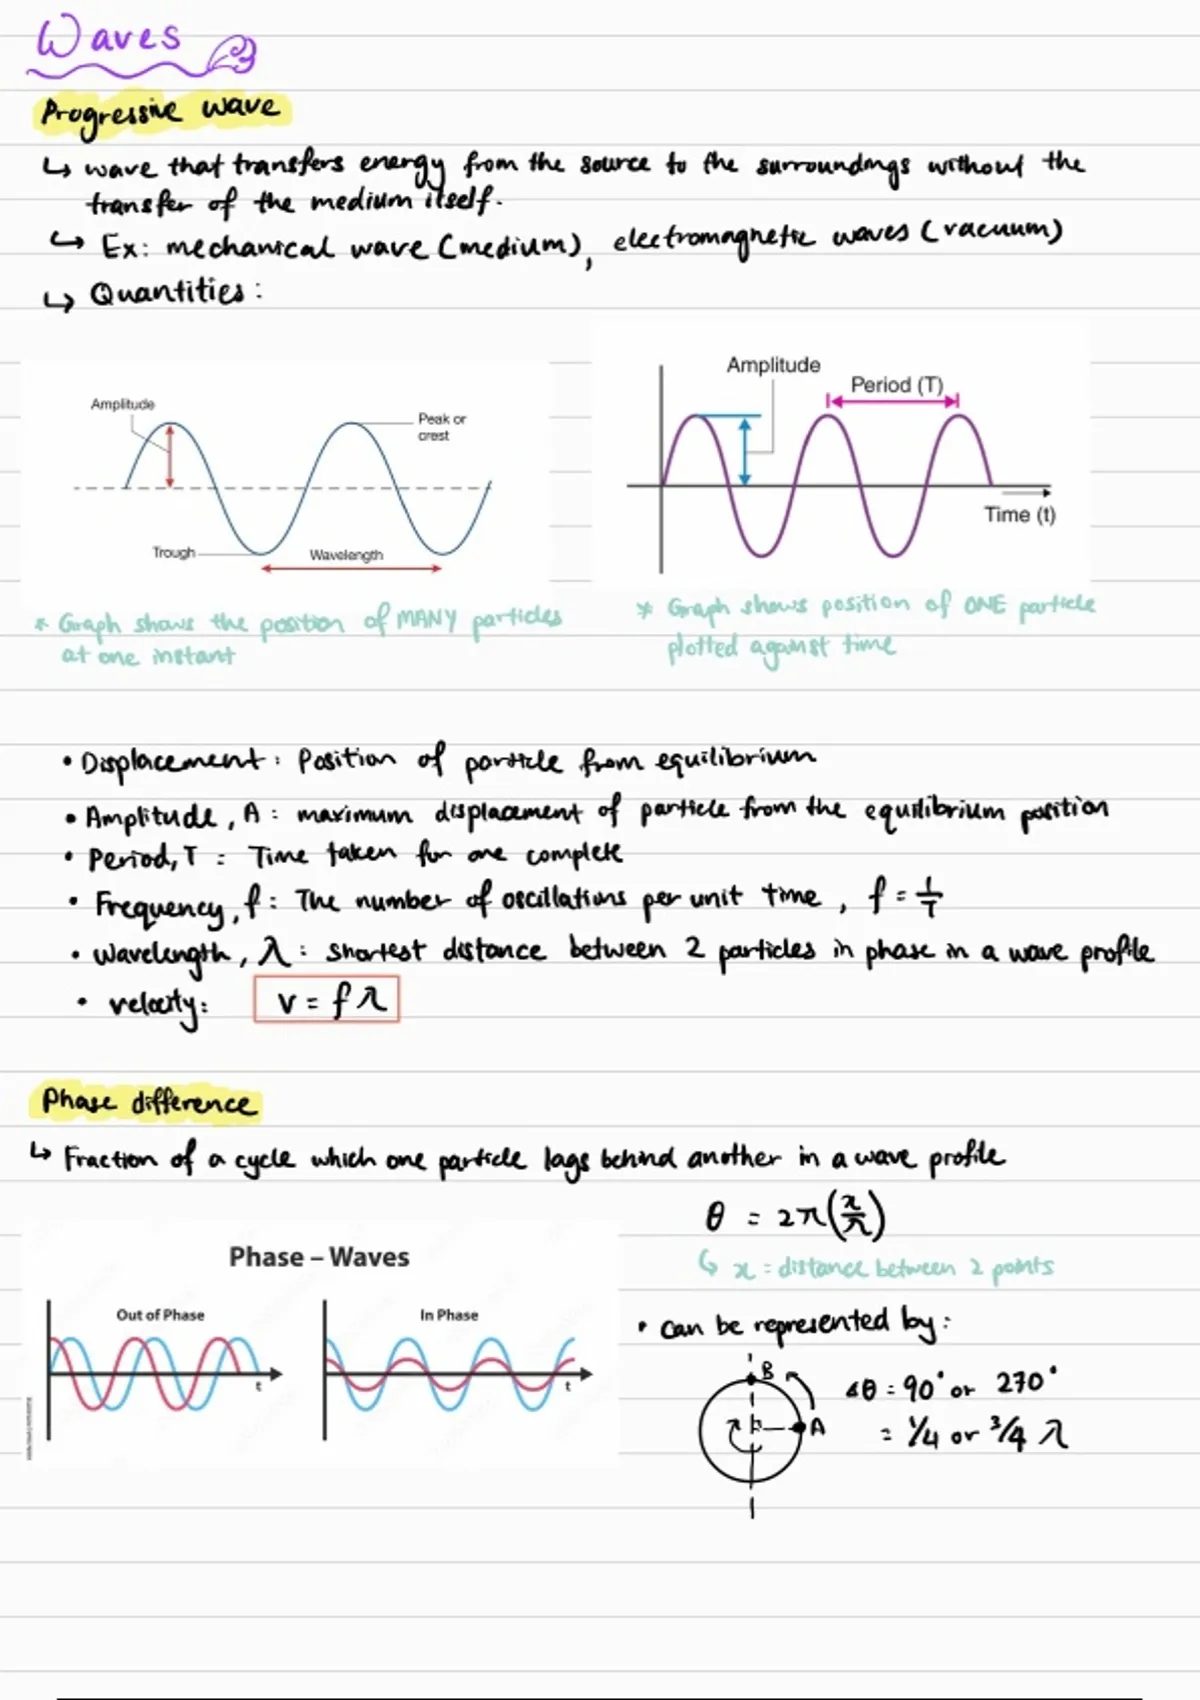 Waves
Progressive wave
↳ wave that transfers energy from the source to the surroundings without the
transfer of the medium itself.
↳ Ex: mechanical wave (medium), electromagnetic waves (vacuum)
↳ Quantities:
Amplitude
Peak or
crest
Trough
Wavelength
Amplitude
Period (T)
Time (t)
* Graph shows the position of MANY particles
at one instant
* Graph shows position of ONE particle
plotted against time
• Displacement: Position of particle from equilibrium
• Amplitude, A: maximum displacement of particle from the equilibrium position
• Period, T: Time taken for one complete
• Frequency, f: The number of oscillations per unit time, f = 1/T
• Wavelength, λ: shortest distance between 2 particles in phase in a wave profile
• velocity: v = fλ
Phase difference
↳ Fraction of a cycle which one particle lags behind another in a wave profile
Phase – Waves
Out of Phase
t
In Phase
t
θ = 2π(x/λ)
↳ x = distance between 2 points
• can be represented by:
B
A
Δθ = 90° or 270°
= 1/4 or 3/4 λ